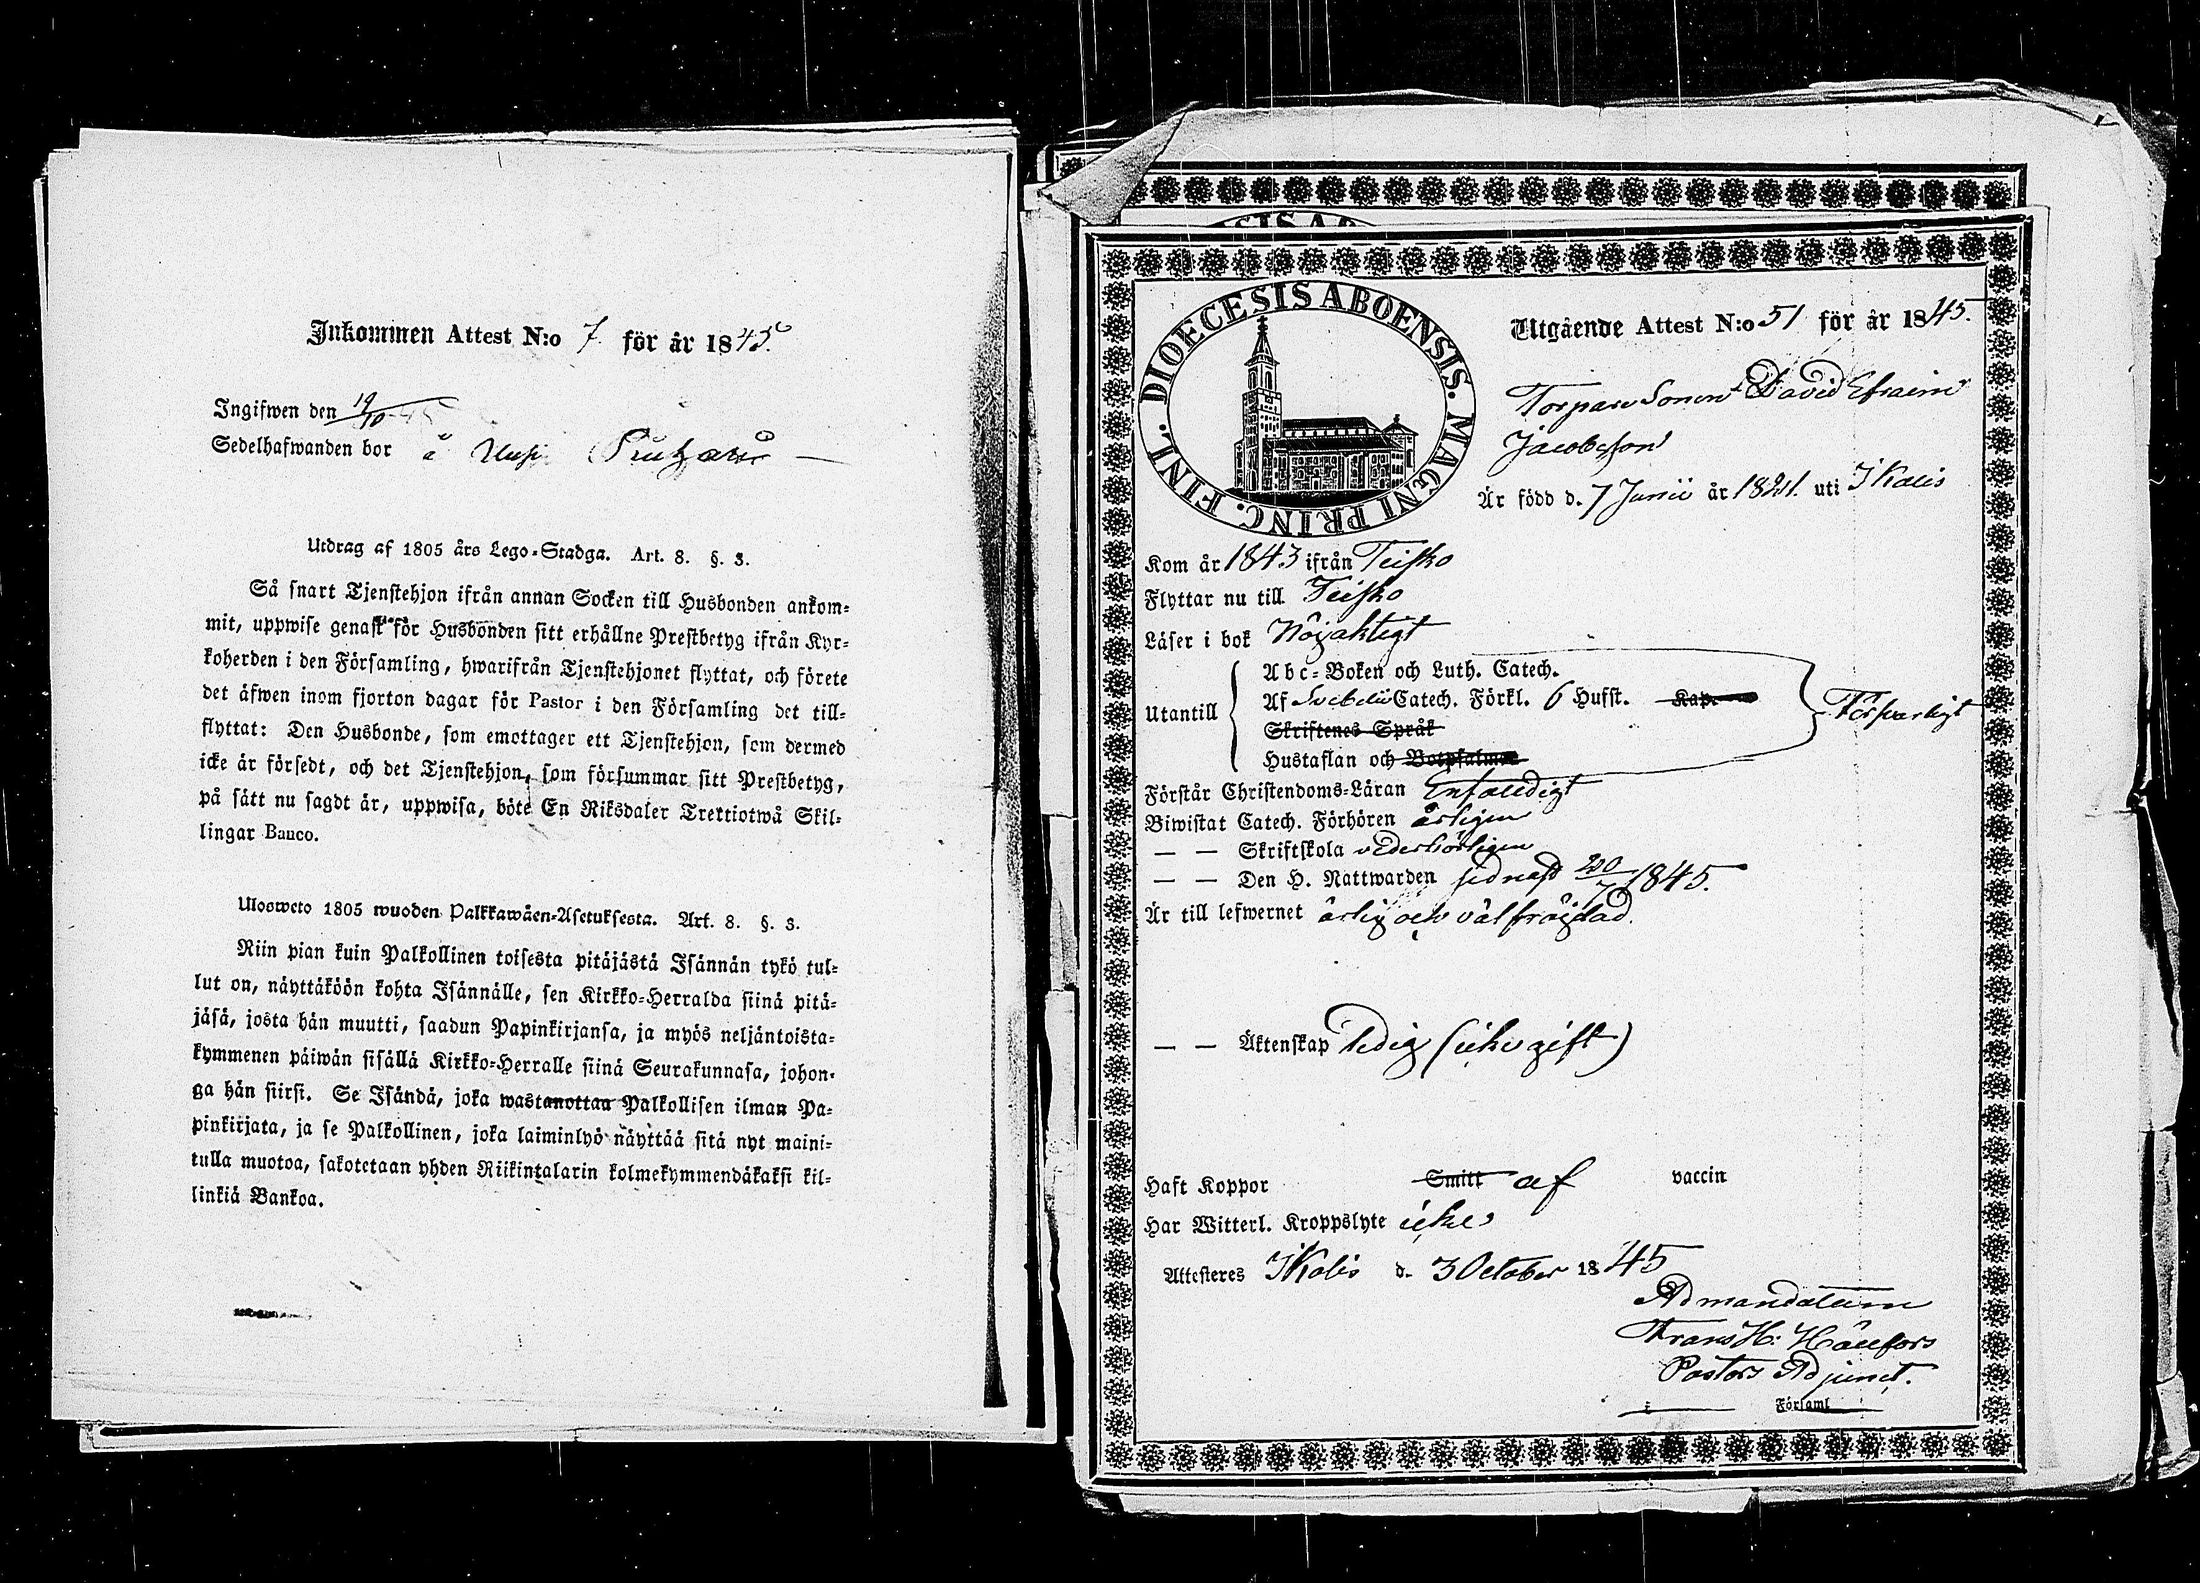 Inkommen Attest N:o 7. för år 1845.
Ingifwen den 19/10 45
Sedelhafwanden bor å
Utdrag af 1805 års Lego-Stadga. Art. 8. §. 3.
Så snart Tjenstehjon ifrån annan Socken till Husbonden ankom-
mit, uppwise genast för Husbonden sitt erhållne Prestbetyg ifrån Kyr-
koherden i den Församling, hwarifrån Tjenstehjonet flyttat, och förete
det äfwen inom fjorton dagar för Pastor i den Församling det till-
flyttat: Den Husbonde, som emottager ett Tjenstehjon, som dermed
icke är försedt, och det Tjenstehjon, som försummar sitt Prestbetyg,
på sätt nu sagdt är, uppwisa, böte En Riksdaler Trettiotwå Skil-
lingar Banco.
Ulosweto 1805 wuoden Palkkawäen-Asetuksesta. Art. 8. §. 3.
Niin pian kuin Palkollinen toisesta pitäjästä Isännän tykö tul-
lut on, näyttäköön kohta Isännälle, sen Kirkko-Herralda siinä pitä-
jäsä, josta hän muutti, saadun Papinkirjansa, ja myös neljäntoista-
kymmenen päiwän sisällä Kirkko-Herralle siinä Seurakunnasa, johon-
ga hän siirsi. Se Isändä, joka wastanottaa Palkollisen ilman Pa-
pinkirjata, ja se Palkollinen, joka laiminlyö näyttää sitä nyt maini-
tulla muotoa, sakotetaan yhden Riikintalarin kolmekymmendäkaksi kil-
linkiä Bankoa.
DIOECESIS ABOENSIS. MAGNI PRINC. FINL.
Utgående Attest N:o 51 för år 1845.
Torpare Sonen David Efraim
Jacobsson
Är född d. 7 Junii år 1821. uti Ikalis
Kom år 1843 ifrån Teisko
Flyttar nu till Teisko
Läser i bok Nöjaktigt
Utantill
Abc-Boken och Luth. Catech.
Af Svebelii Catech. Förkl. 6 Hufst. Kap.
Skriftenes Språk
Hustaflan och Botpsalmer
Försvarligt
Förstår Christendoms-Läran Enfaldigt
Biwistat Catech. Förhören årligen
— — Skriftskola vederbörligen
— — Den H. Nattwarden sednast 20/7 1845.
Är till lefwernet ärlig och välfräjdad.
— — Äktenskap ledig (icke gift)
Haft Koppor Smitt af vaccin
Har Witterl. Kroppslyte icke
Attesteres Ikalis d. 3 October 1845
Ad mandatum
Frans H:
Pastors Adjunct.
i Församl